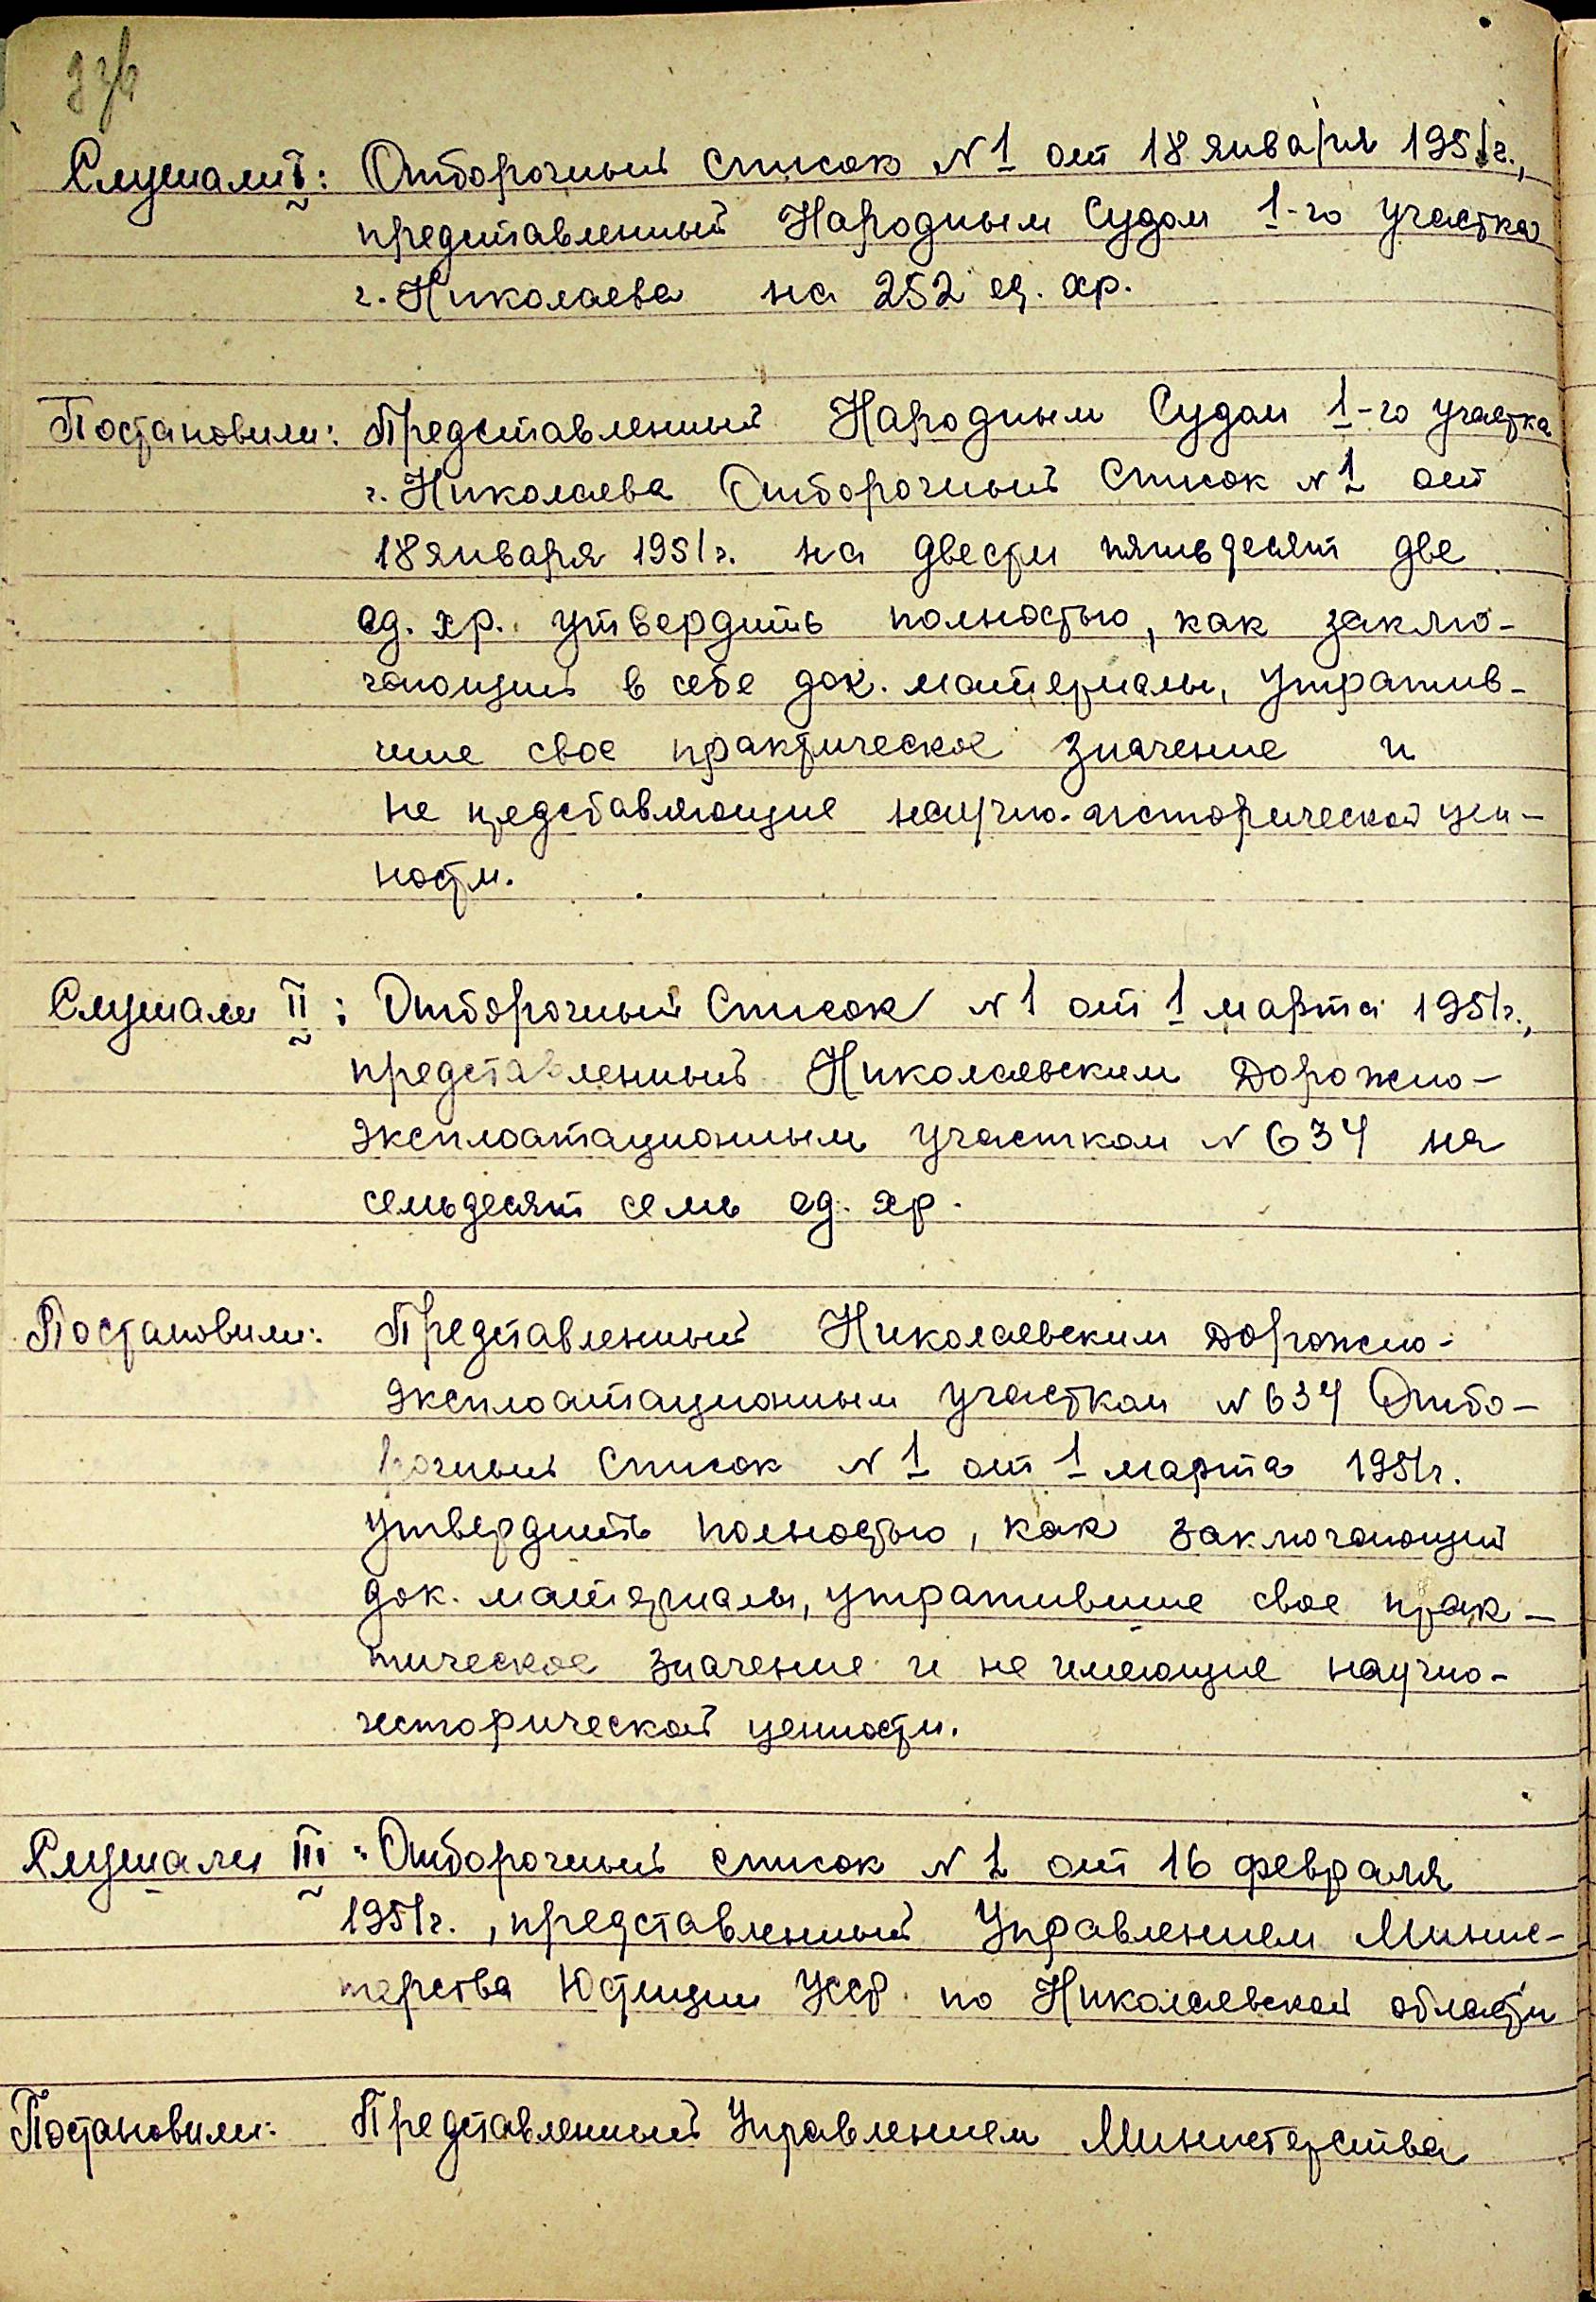 Слушали I: Отборочный список N 1 от 18 января 1951г.,
представленный Народным Судом 1-го участка
г. Николаева на 252 ед. хр.
Постановили: Представленный Народным Судом 1-го участка
г. Николаева Отборочный Список N 1 от
18 января 1951г. на двести пятьдесят две
ед. хр. утвердить полностью, как заклю-
чающий в себе док. материалы, утратив-
шие свое практическое значение и
не представляющие научно-исторической цен-
ности.
Слушали II: Отборочный Список N 1 от 1 марта 1951г.,
представленный Николаевским Дорожно-
эксплоатационным участком N 634 на
семьдесят семь ед. хр.
Постановили: Представленный Николаевским Дорожно-
эксплоатационным участком N 634 Отбо-
рочный Список N 1 от 1 марта 1951г.
утвердить полностью, как заключающий
док. материалы, утратившие свое прак-
тическое значение и не имеющие научно-
исторической ценности.
Слушали III: Отборочный список N 1 от 16 февраля
1951г., представленный Управлением Минис-
терства Юстиции УССР по Николаевской области
Постановили: Представленный Управлением Министерства